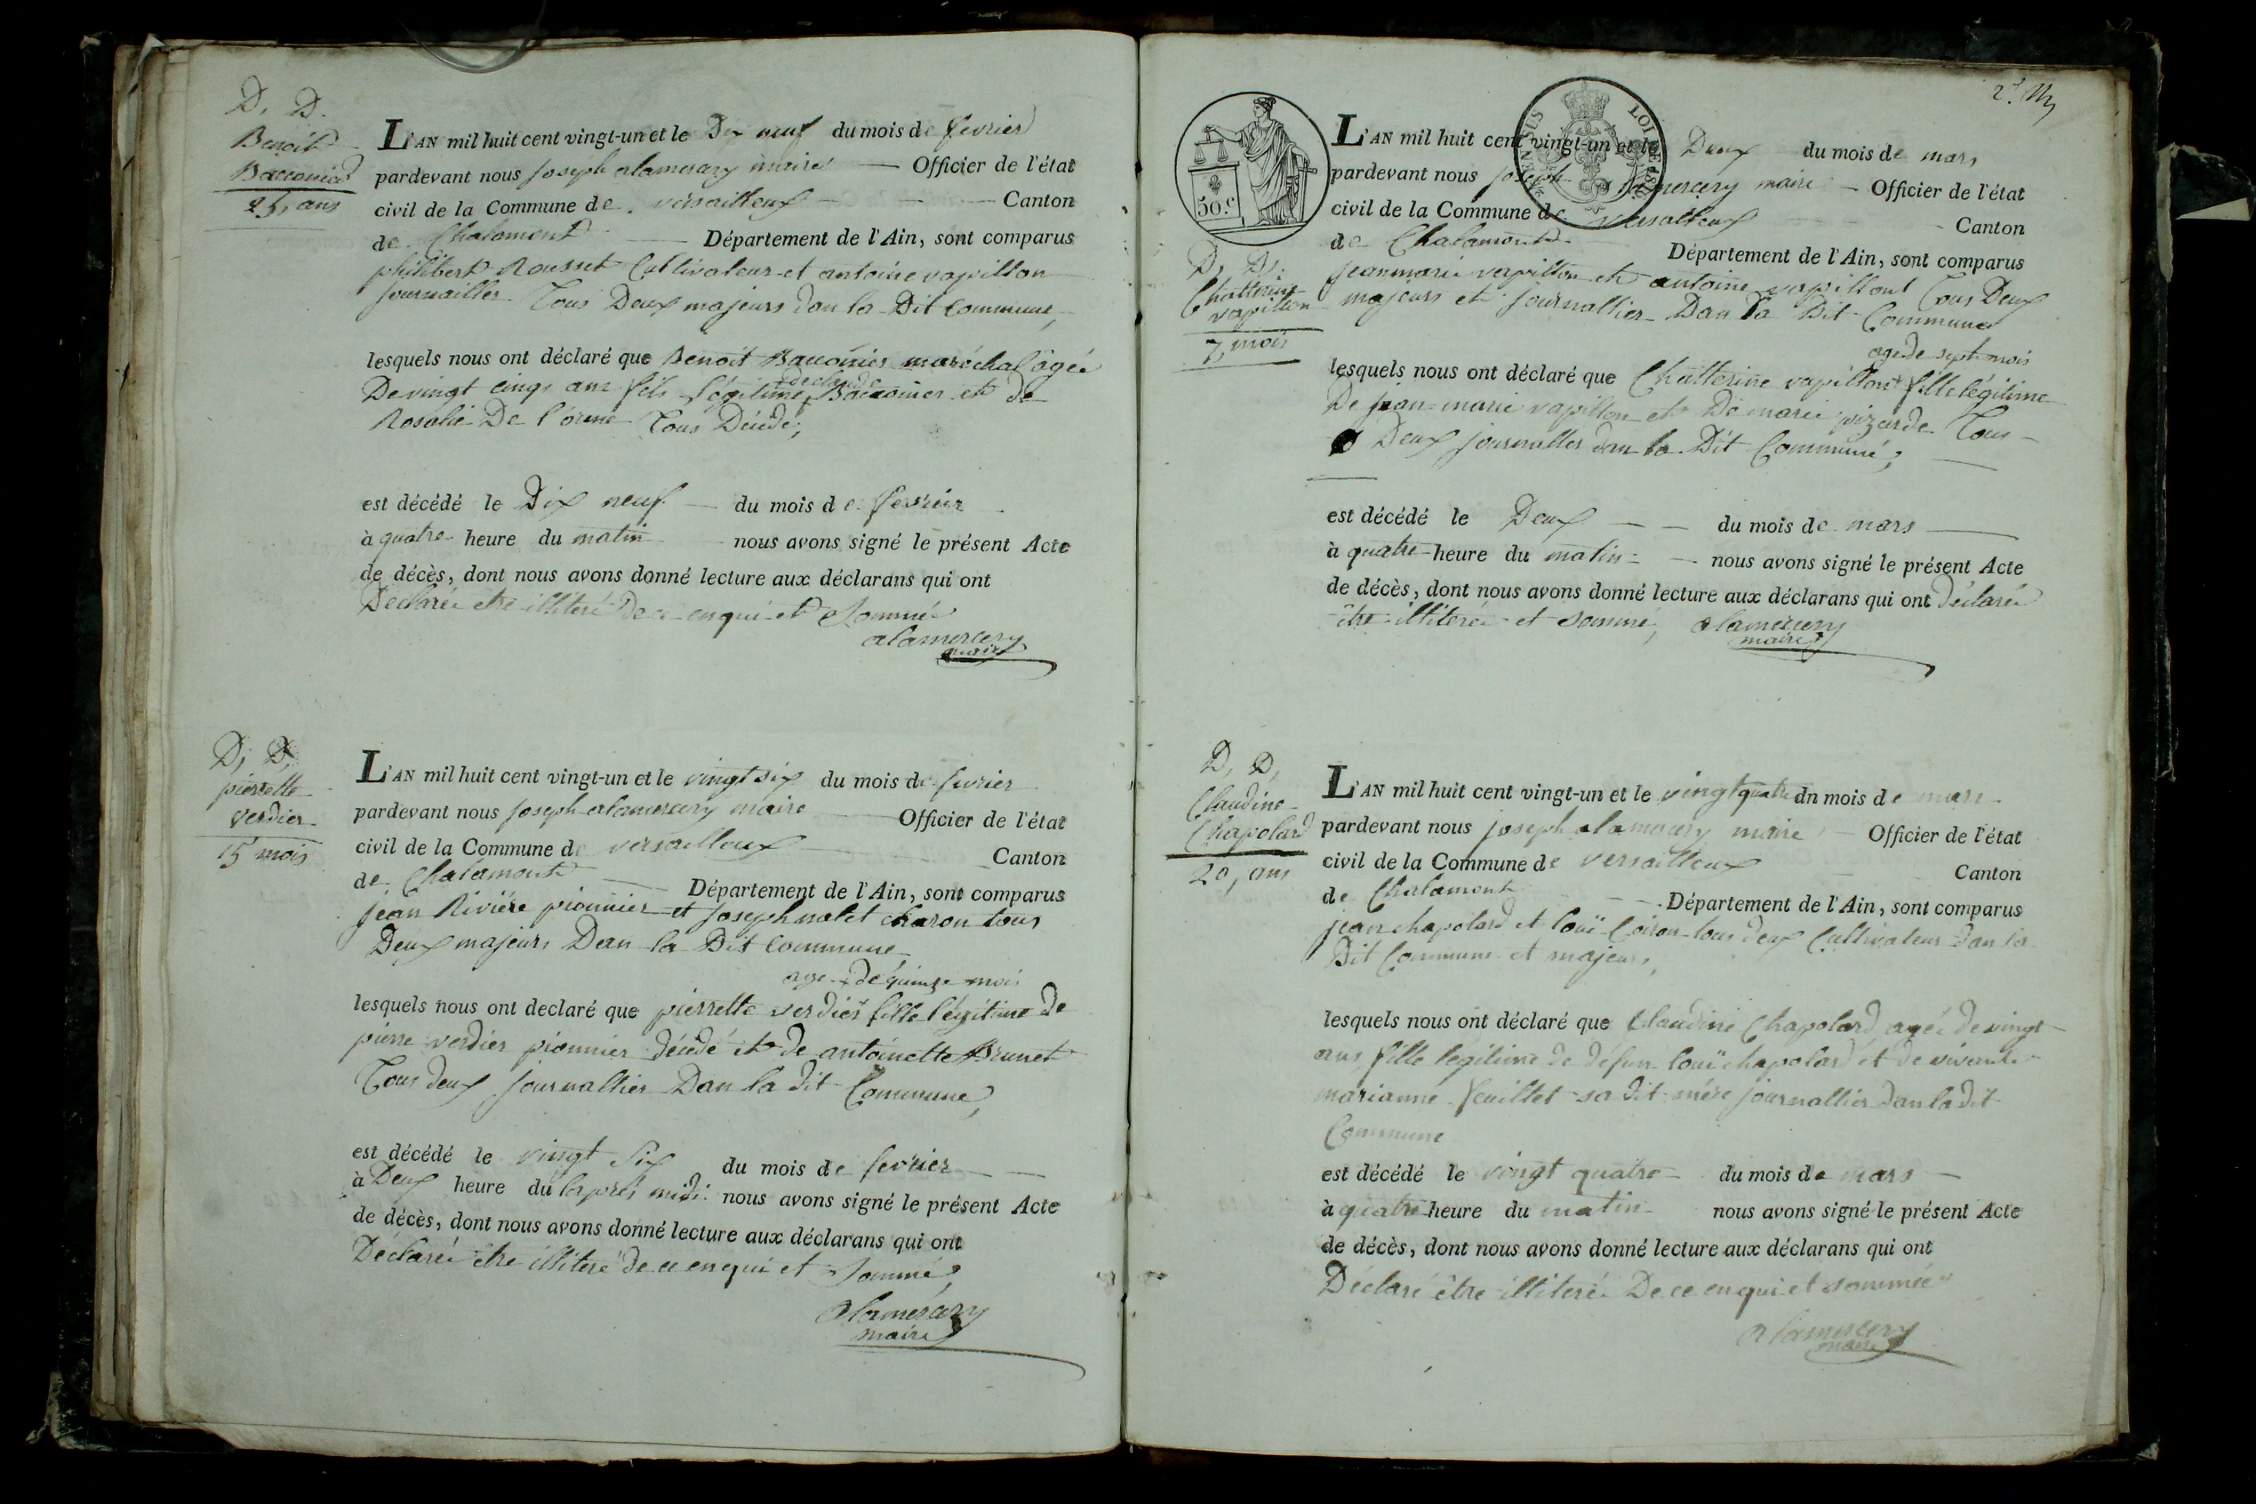 D, D.
Benoit
Bacconier
25, ans
L'AN mil huit cent vingt-un et le Dix neuf du mois de fevrier
pardevant nous joseph alamercery maire Officier de l'état
civil de la Commune de versailleux Canton
de Chalamont Département de l'Ain, sont comparus
philibert Rousset Cultivateur et antoine vapillon
journailler Tous Deux majeurs dan la Dit Commune,
lesquels nous ont déclaré que Benoit Bacconier maréchal âgée
De vingt cinqs ans fils légitime Bacconier et de
Rosalie De l'orme Tous Décédé,
est décédé le Dix neuf du mois de fevrier
à quatre heure du matin nous avons signé le présent Acte
de décès, dont nous avons donné lecture aux déclarans qui ont
Déclarée etre illiteré de ce enqui et Sommée
alamercery
maire
D, D,
pierrette
verdier
15 mois
L'AN mil huit cent vingt-un et le vingt six du mois de fevrier
pardevant nous joseph alamercery maire Officier de l'état
civil de la Commune de versailleux Canton
de Chalamont Département de l'Ain, sont comparus
jean Riviére pionnier et joseph molet charon tous
Deux majeurs Dan la Dit Commune,
age de quinze mois
lesquels nous ont declaré que pierrette verdier fille légitime de
pierre verdier pionnier décédé et de antoinette Brunet
Tous deux journallier Dan la dit Commune,
est décédé le vingt Six du mois de fevrier
à Deux heure du laprés midi nous avons signé le présent Acte
de décès, dont nous avons donné lecture aux déclarans qui ont
Déclarée etre illiteré de ce enqui et Sommé,
alamercery
maire
50.c
TIMBRE
LOI DE 1816
D, D,
Chatterine
vapillon
7, mois
L'AN mil huit cent vingt-un et le Deux du mois de mars
pardevant nous joseph alamercery maire Officier de l'état
civil de la Commune de versalleux Canton
de Chalamont Département de l'Ain, sont comparus
jeanmarie vapillon et antoine vapillont Tous Deux
majeurs et journallier Dan la Dit Commune
age de sept mois
lesquels nous ont déclaré que Chatterine vapillont fille légitime
De jean-marie vapillon et De marie pizarde Tous
Deux journallier dan la Dit Commune,
est décédé le Deux du mois de mars
à quatre heure du matin nous avons signé le présent Acte
de décès, dont nous avons donné lecture aux déclarans qui ont déclarée
être illiterée et sommé, alamercery
maire
D, D,
Claudine
Chapolard
20, ans
L'AN mil huit cent vingt-un et le vingt quatre dn mois de mars
pardevant nous joseph alamercery maire Officier de l'état
civil de la Commune de versailleux Canton
de Chalamont Département de l'Ain, sont comparus
jean chapolard et louï Coiron tous deux Cultivateur dan la
Dit Commune et majeurs,
lesquels nous ont déclaré que Claudine Chapolard agée de vingt
ans fille legitime de défun louï chapolard et de vivante
marianne feuillet sa dit mére journallier dan la dit
Commune
est décédé le vingt quatre du mois de mars
à quatre heure du matin nous avons signé le présent Acte
de décès, dont nous avons donné lecture aux déclarans qui ont
Déclaré être illiterée De ce enqui et sommée
alamercery
maire